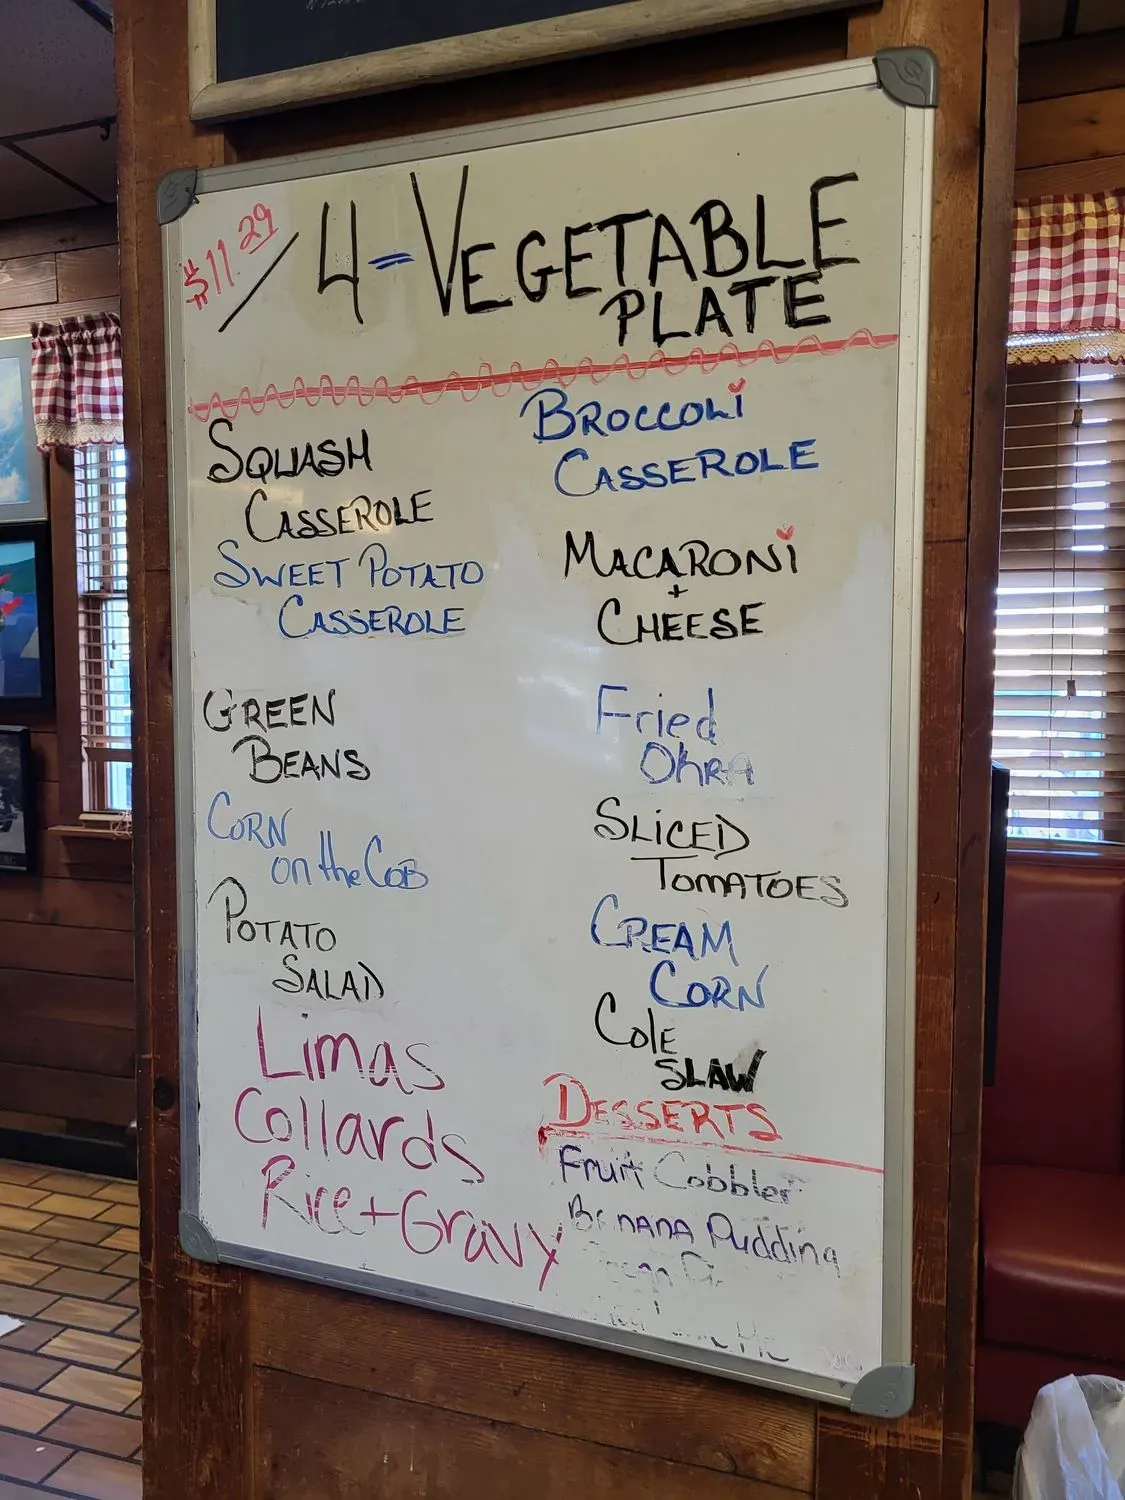 $11.29 / 4 = VEGETABLE
PLATE
SQUASH
CASSEROLE
SWEET POTATO
CASSEROLE
GREEN
BEANS
CORN
on the COB
POTATO
SALAD
Limas
Collards
Rice + Gravy
BROCCOLi
CASSEROLE
MACARONi
+
CHEESE
Fried
OkRA
SLiCED
TOMATOES
CREAM
CORN
Cole
SLAW
DESSERTS
Fruit Cobbler
BANANA Pudding